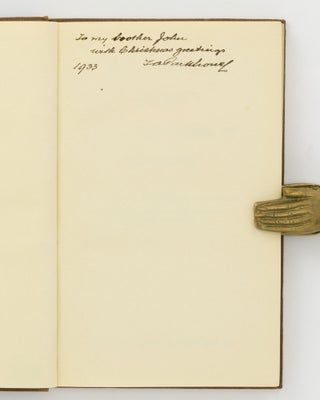 To my brother John
with Christmas greetings
1933